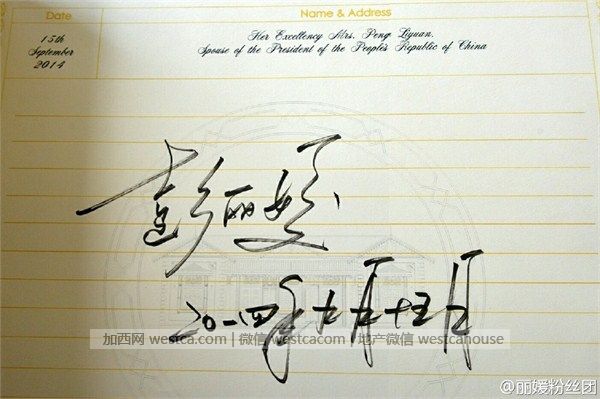 Date
Name & Address
15th
September
2014
Her Excellency Mrs. Peng Liyuan,
Spouse of the President of the People's Republic of China
彭丽媛
二〇一四年九月十五日
加西网 westca.com | 微信 westcacom | 地产微信 westcahouse
@丽媛粉丝团